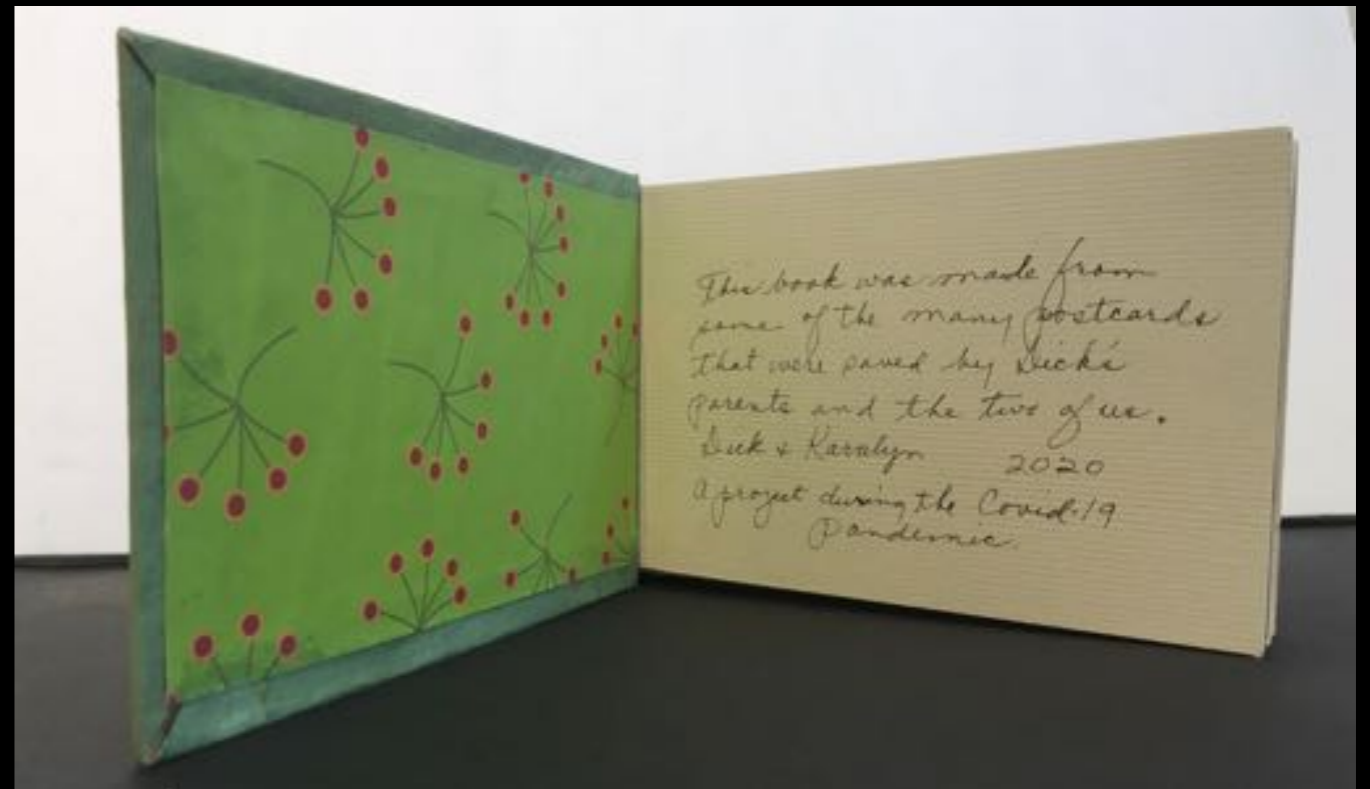 This book was made from
some of the many postcards
that were saved by Dick's
parents and the two of us.
Dick & Karalyn 2020
A project during the Covid-19
Pandemic.